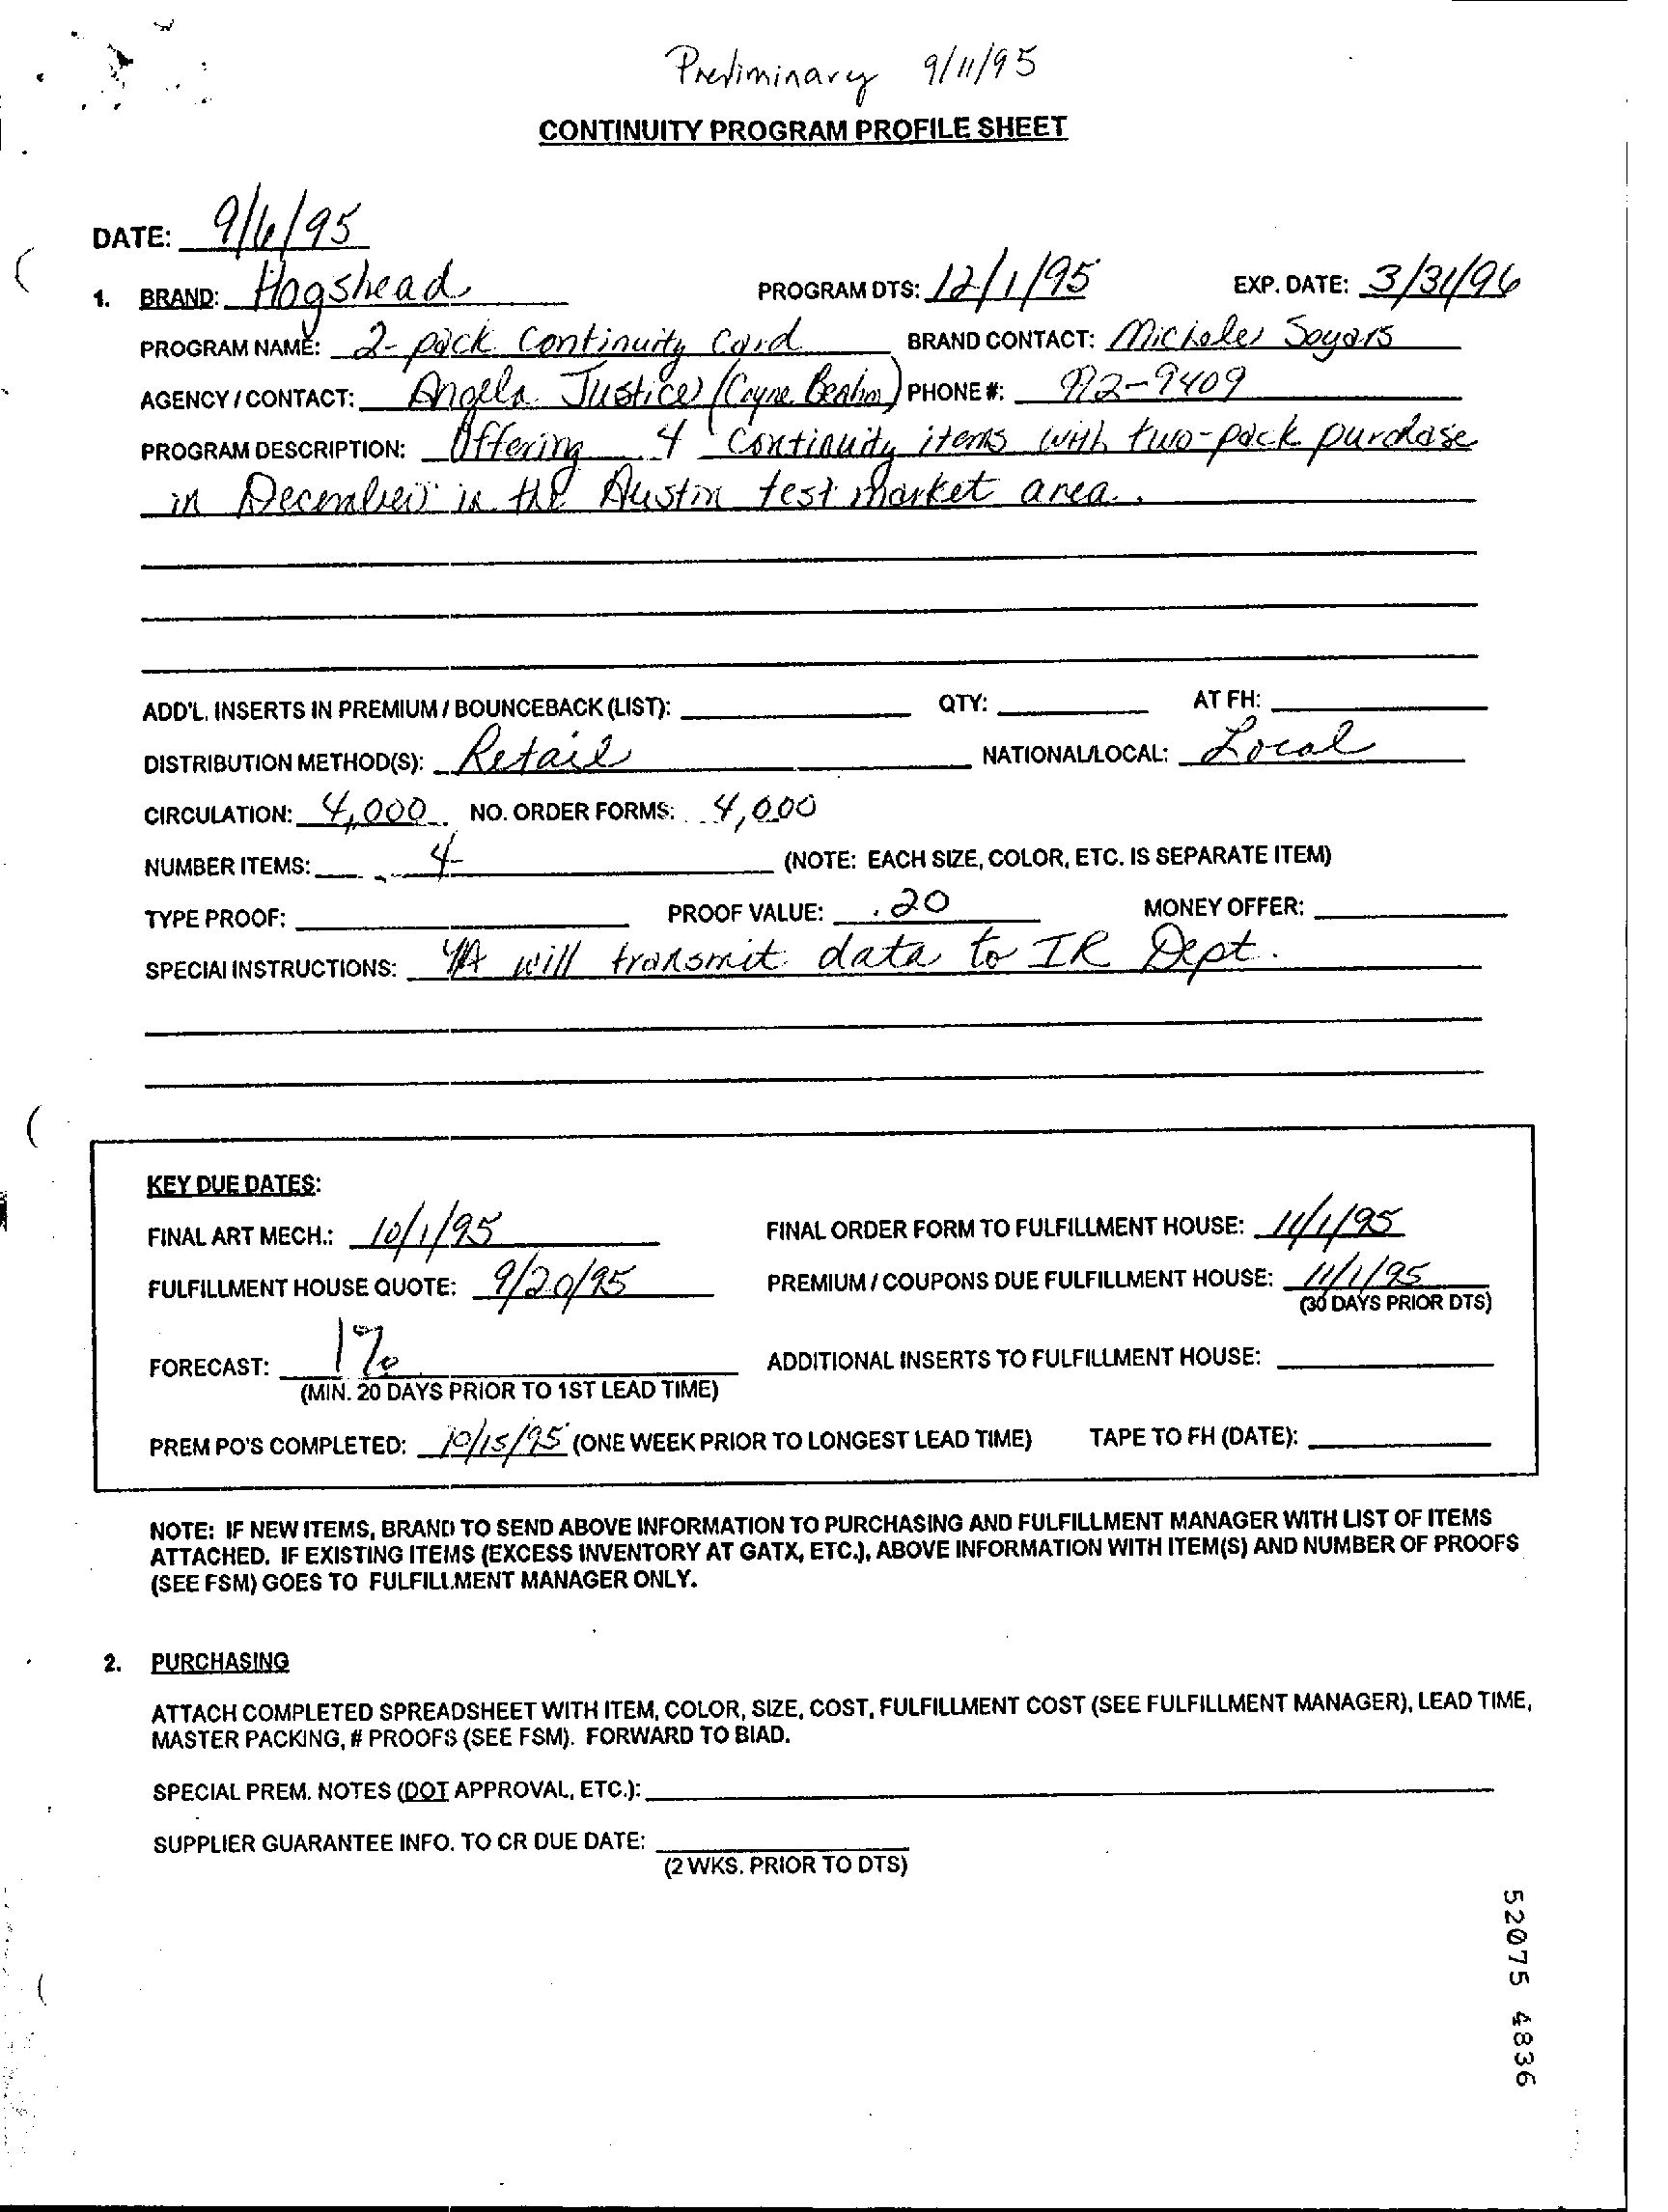 Preliminary 9/11/95
CONTINUITY PROGRAM PROFILE SHEET
DATE: 9/6/95
1. BRAND: Hogshead PROGRAM DTS: 12/1/95 EXP. DATE: 3/31/96
PROGRAM NAME: 2-pack Continuity Card BRAND CONTACT: Michele Soyars
AGENCY / CONTACT: Angela Justice (Coyne Beahm) PHONE #: 972-9409
PROGRAM DESCRIPTION: Offering 4 continuity items with two-pack purchase
in December in the Austin test market area.
ADD'L. INSERTS IN PREMIUM / BOUNCEBACK (LIST): QTY: AT FH:
DISTRIBUTION METHOD(S): Retail NATIONAL/LOCAL: Local
CIRCULATION: 4,000 NO. ORDER FORMS: 4,000
NUMBER ITEMS: 4 (NOTE: EACH SIZE, COLOR, ETC. IS SEPARATE ITEM)
TYPE PROOF: PROOF VALUE: .20 MONEY OFFER:
SPECIAL INSTRUCTIONS: will transmit data to IR Dept.
KEY DUE DATES:
FINAL ART MECH.: 10/1/95 FINAL ORDER FORM TO FULFILLMENT HOUSE: 11/1/95
FULFILLMENT HOUSE QUOTE: 9/20/95 PREMIUM / COUPONS DUE FULFILLMENT HOUSE: 11/1/95
(30 DAYS PRIOR DTS)
FORECAST: 1% ADDITIONAL INSERTS TO FULFILLMENT HOUSE:
(MIN. 20 DAYS PRIOR TO 1ST LEAD TIME)
PREM PO'S COMPLETED: 10/15/95 (ONE WEEK PRIOR TO LONGEST LEAD TIME) TAPE TO FH (DATE):
NOTE: IF NEW ITEMS, BRAND TO SEND ABOVE INFORMATION TO PURCHASING AND FULFILLMENT MANAGER WITH LIST OF ITEMS
ATTACHED. IF EXISTING ITEMS (EXCESS INVENTORY AT GATX, ETC.), ABOVE INFORMATION WITH ITEM(S) AND NUMBER OF PROOFS
(SEE FSM) GOES TO FULFILLMENT MANAGER ONLY.
2. PURCHASING
ATTACH COMPLETED SPREADSHEET WITH ITEM, COLOR, SIZE, COST, FULFILLMENT COST (SEE FULFILLMENT MANAGER), LEAD TIME,
MASTER PACKING, # PROOFS (SEE FSM). FORWARD TO BIAD.
SPECIAL PREM. NOTES (DOT APPROVAL, ETC.):
SUPPLIER GUARANTEE INFO. TO CR DUE DATE:
(2 WKS. PRIOR TO DTS)
52075 4836